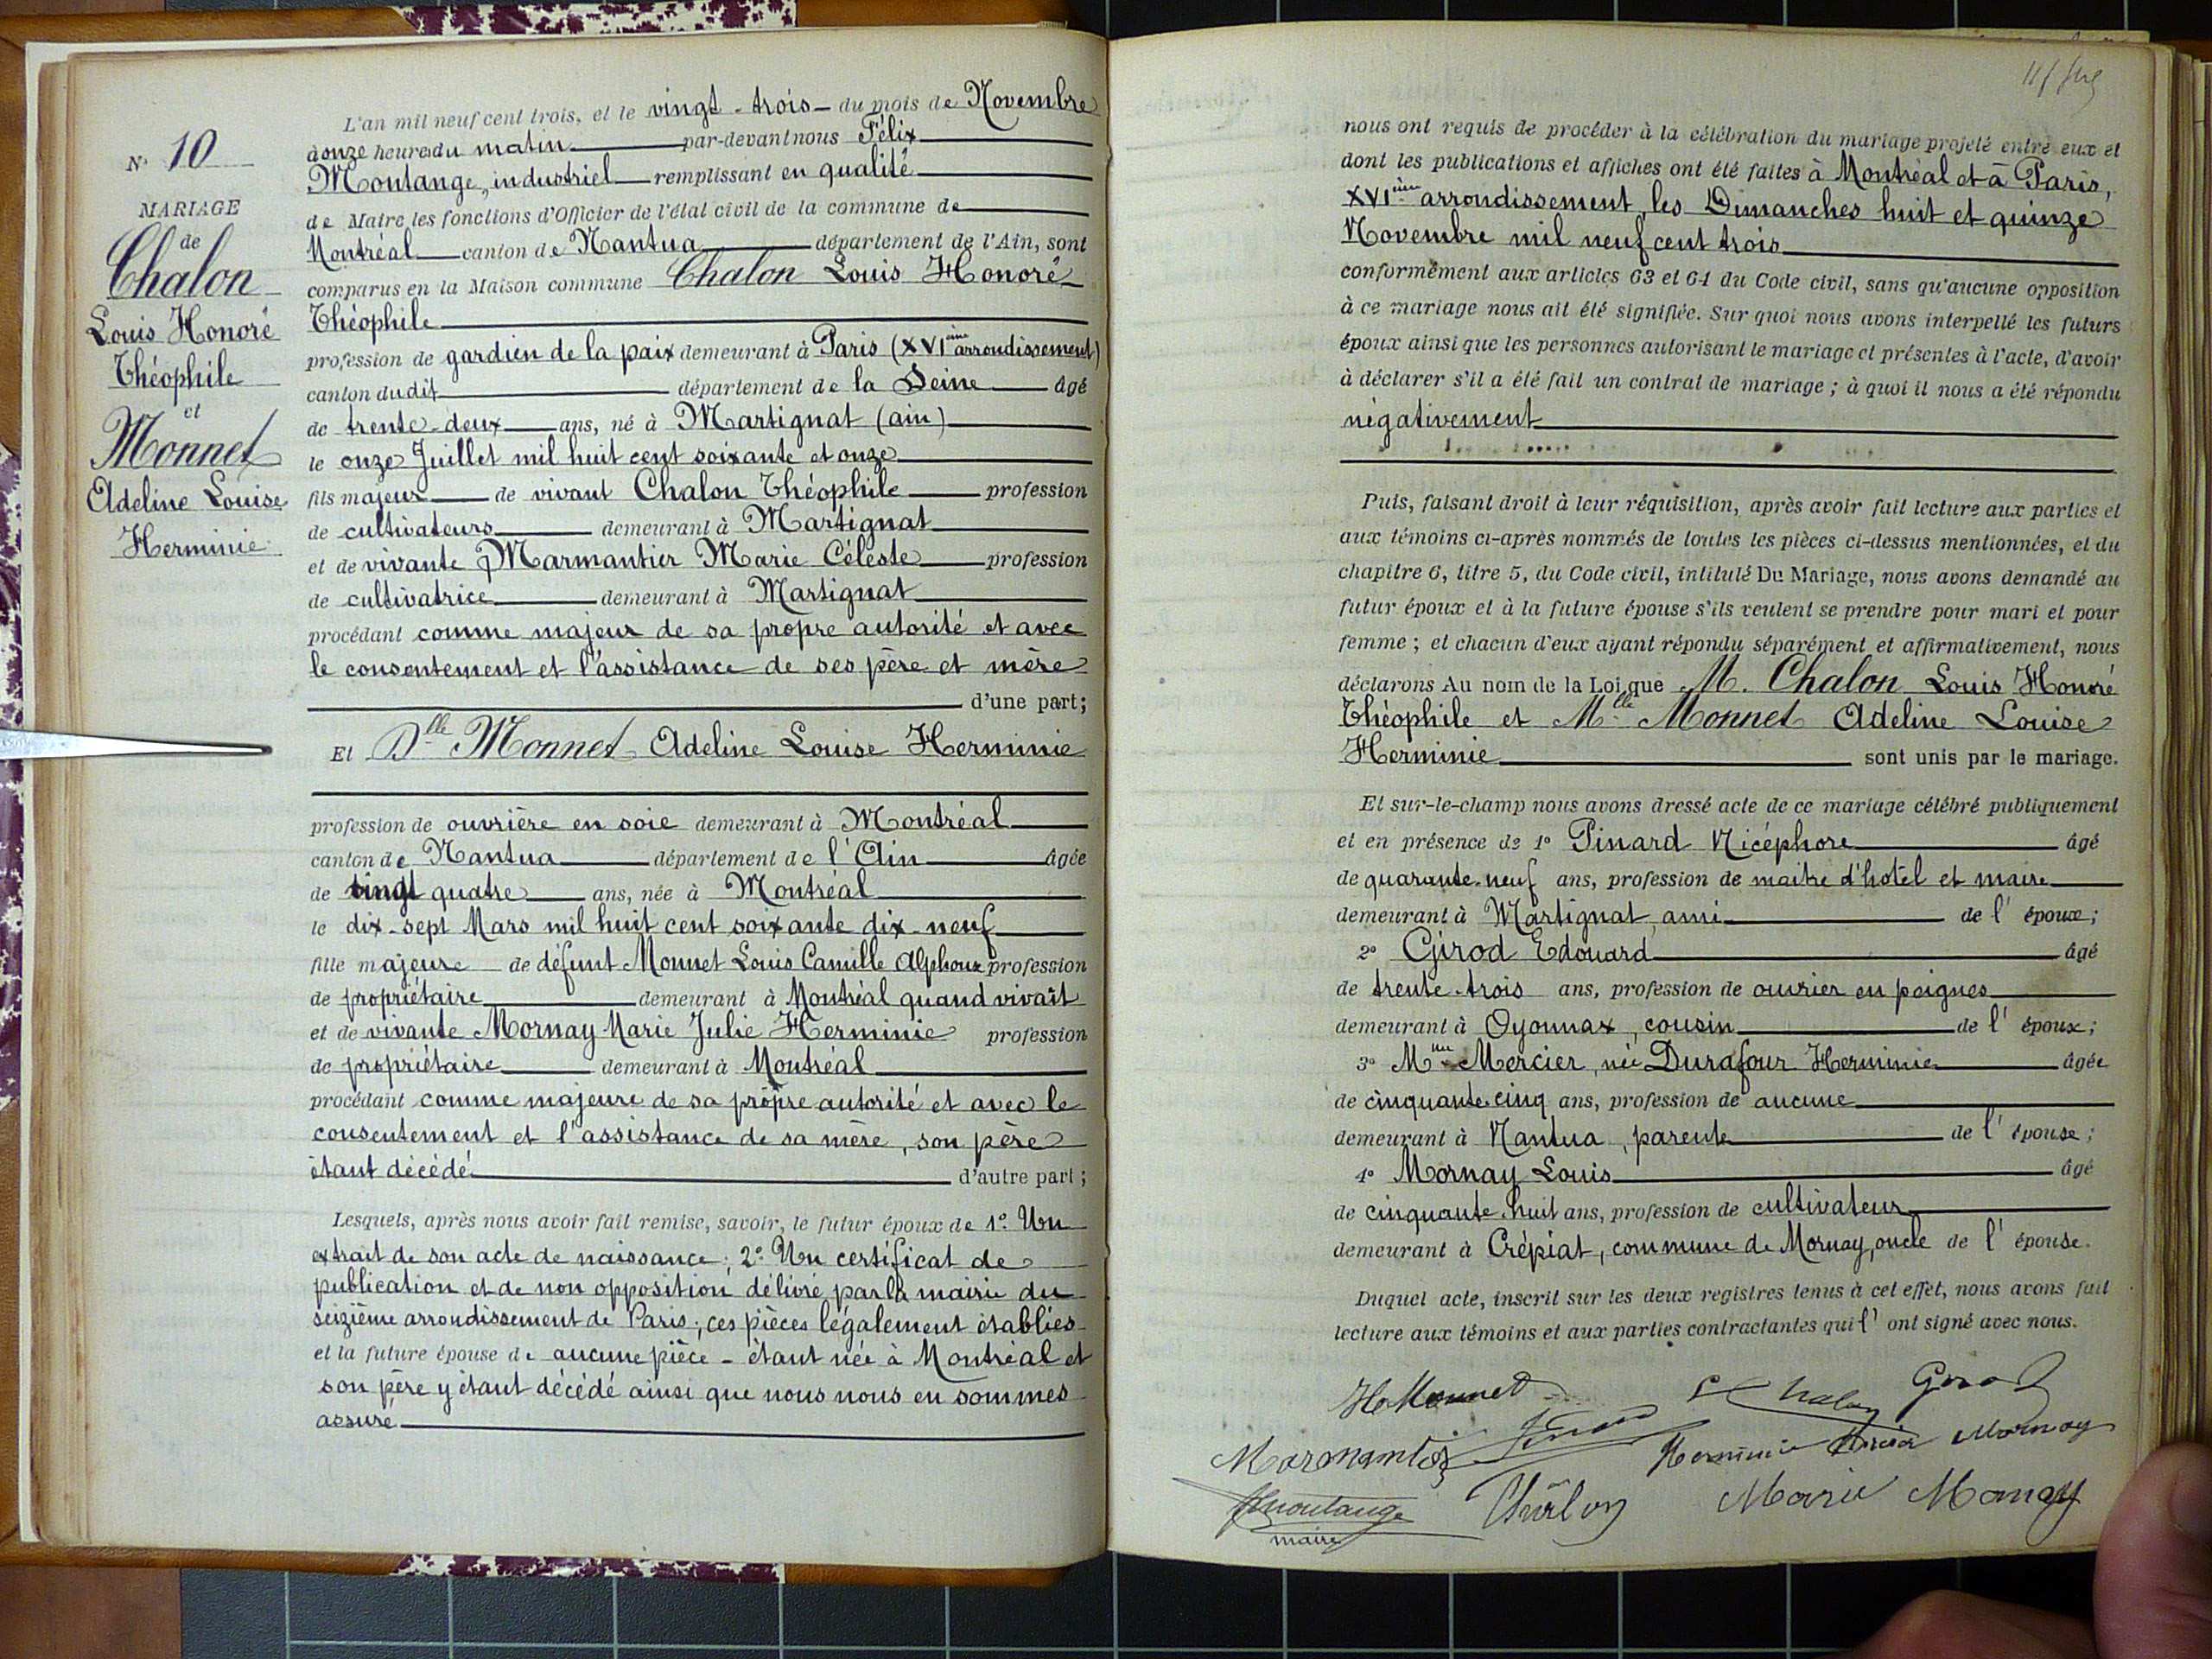 N° 10
MARIAGE
de
Chalon
Louis Honoré
Théophile
et
Monnet
Adeline Louise
Herminie
L'an mil neuf cent trois, et le vingt-trois du mois de Novembre
à onze heures du matin par-devant nous Félix
Moulange, industriel remplissant en qualité
de Maire les fonctions d'Officier de l'état civil de la commune de
Montréal canton de Nantua département de l'Ain, sont
comparus en la Maison commune Chalon Louis Honoré
Théophile
profession de gardien de la paix demeurant à Paris (XVIème arrondissement)
canton dudit département de la Seine âgé
de trente-deux ans, né à Martignat (ain)
le onze Juillet mil huit cent soixante et onze
fils majeur de vivant Chalon Théophile profession
de cultivateurs demeurant à Martignat
et de vivante Marmantier Marie Céleste profession
de cultivatrice demeurant à Martignat
procédant comme majeur de sa propre autorité et avec
le consentement et l'assistance de ses père et mère
d'une part;
Et Dlle Monnet Adeline Louise Herminie
profession de ouvrière en soie demeurant à Montréal
canton de Nantua département de l'Ain âgée
de vingt quatre ans, née à Montréal
le dix-sept Mars mil huit cent soixante dix-neuf
fille majeure de défunt Monnet Louis Camille Alphonse profession
de propriétaire demeurant à Montréal quand vivait
et de vivante Mornay Marie Julie Herminie profession
de propriétaire demeurant à Montréal
procédant comme majeure de sa propre autorité et avec le
consentement et l'assistance de sa mère, son père
étant décédé d'autre part;
Lesquels, après nous avoir fait remise, savoir, le futur époux de 1° Un
extrait de son acte de naissance; 2° Un certificat de
publication et de non opposition délivré par la mairie du
seizième arrondissement de Paris; ces pièces légalement établies
et la future épouse de aucune pièce - étant née à Montréal et
son père y étant décédé ainsi que nous nous en sommes
assuré
nous ont requis de procéder à la célébration du mariage projeté entre eux et
dont les publications et affiches ont été faites à Montréal et à Paris,
XVIème arrondissement, les Dimanches huit et quinze
Novembre mil neuf cent trois
conformément aux articles 63 et 64 du Code civil, sans qu'aucune opposition
à ce mariage nous ait été signifiée. Sur quoi nous avons interpellé les futurs
époux ainsi que les personnes autorisant le mariage et présentes à l'acte, d'avoir
à déclarer s'il a été fait un contrat de mariage; à quoi il nous a été répondu
négativement
Puis, faisant droit à leur réquisition, après avoir fait lecture aux parties et
aux témoins ci-après nommés de toutes les pièces ci-dessus mentionnées, et du
chapitre 6, titre 5, du Code civil, intitulé Du Mariage, nous avons demandé au
futur époux et à la future épouse s'ils veulent se prendre pour mari et pour
femme; et chacun d'eux ayant répondu séparément et affirmativement, nous
déclarons Au nom de la Loi que M. Chalon Louis Honoré
Théophile et Mlle Monnet Adeline Louise
Herminie sont unis par le mariage.
Et sur-le-champ nous avons dressé acte de ce mariage célébré publiquement
et en présence de 1° Pinard Nicéphore âgé
de quarante-neuf ans, profession de maitre d'hotel et maire
demeurant à Martignat, ami de l'époux;
2° Girod Edouard âgé
de trente-trois ans, profession de ouvrier en peignes
demeurant à Oyonnax, cousin de l'époux;
3° Mme Mercier, née Durafour Herminie âgée
de cinquante cinq ans, profession de aucune
demeurant à Nantua, parente de l'épouse;
4° Mornay Louis âgé
de cinquante-huit ans, profession de cultivateur
demeurant à Crépiat, commune de Mornay, oncle de l'épouse.
Duquel acte, inscrit sur les deux registres tenus à cet effet, nous avons fait
lecture aux témoins et aux parties contractantes qui l'ont signé avec nous.
H Monnet L Chalon Girod
Marmantier Pinard Herminie Mercier Mornay
F Moulange Chalon Marie Mornay
maire